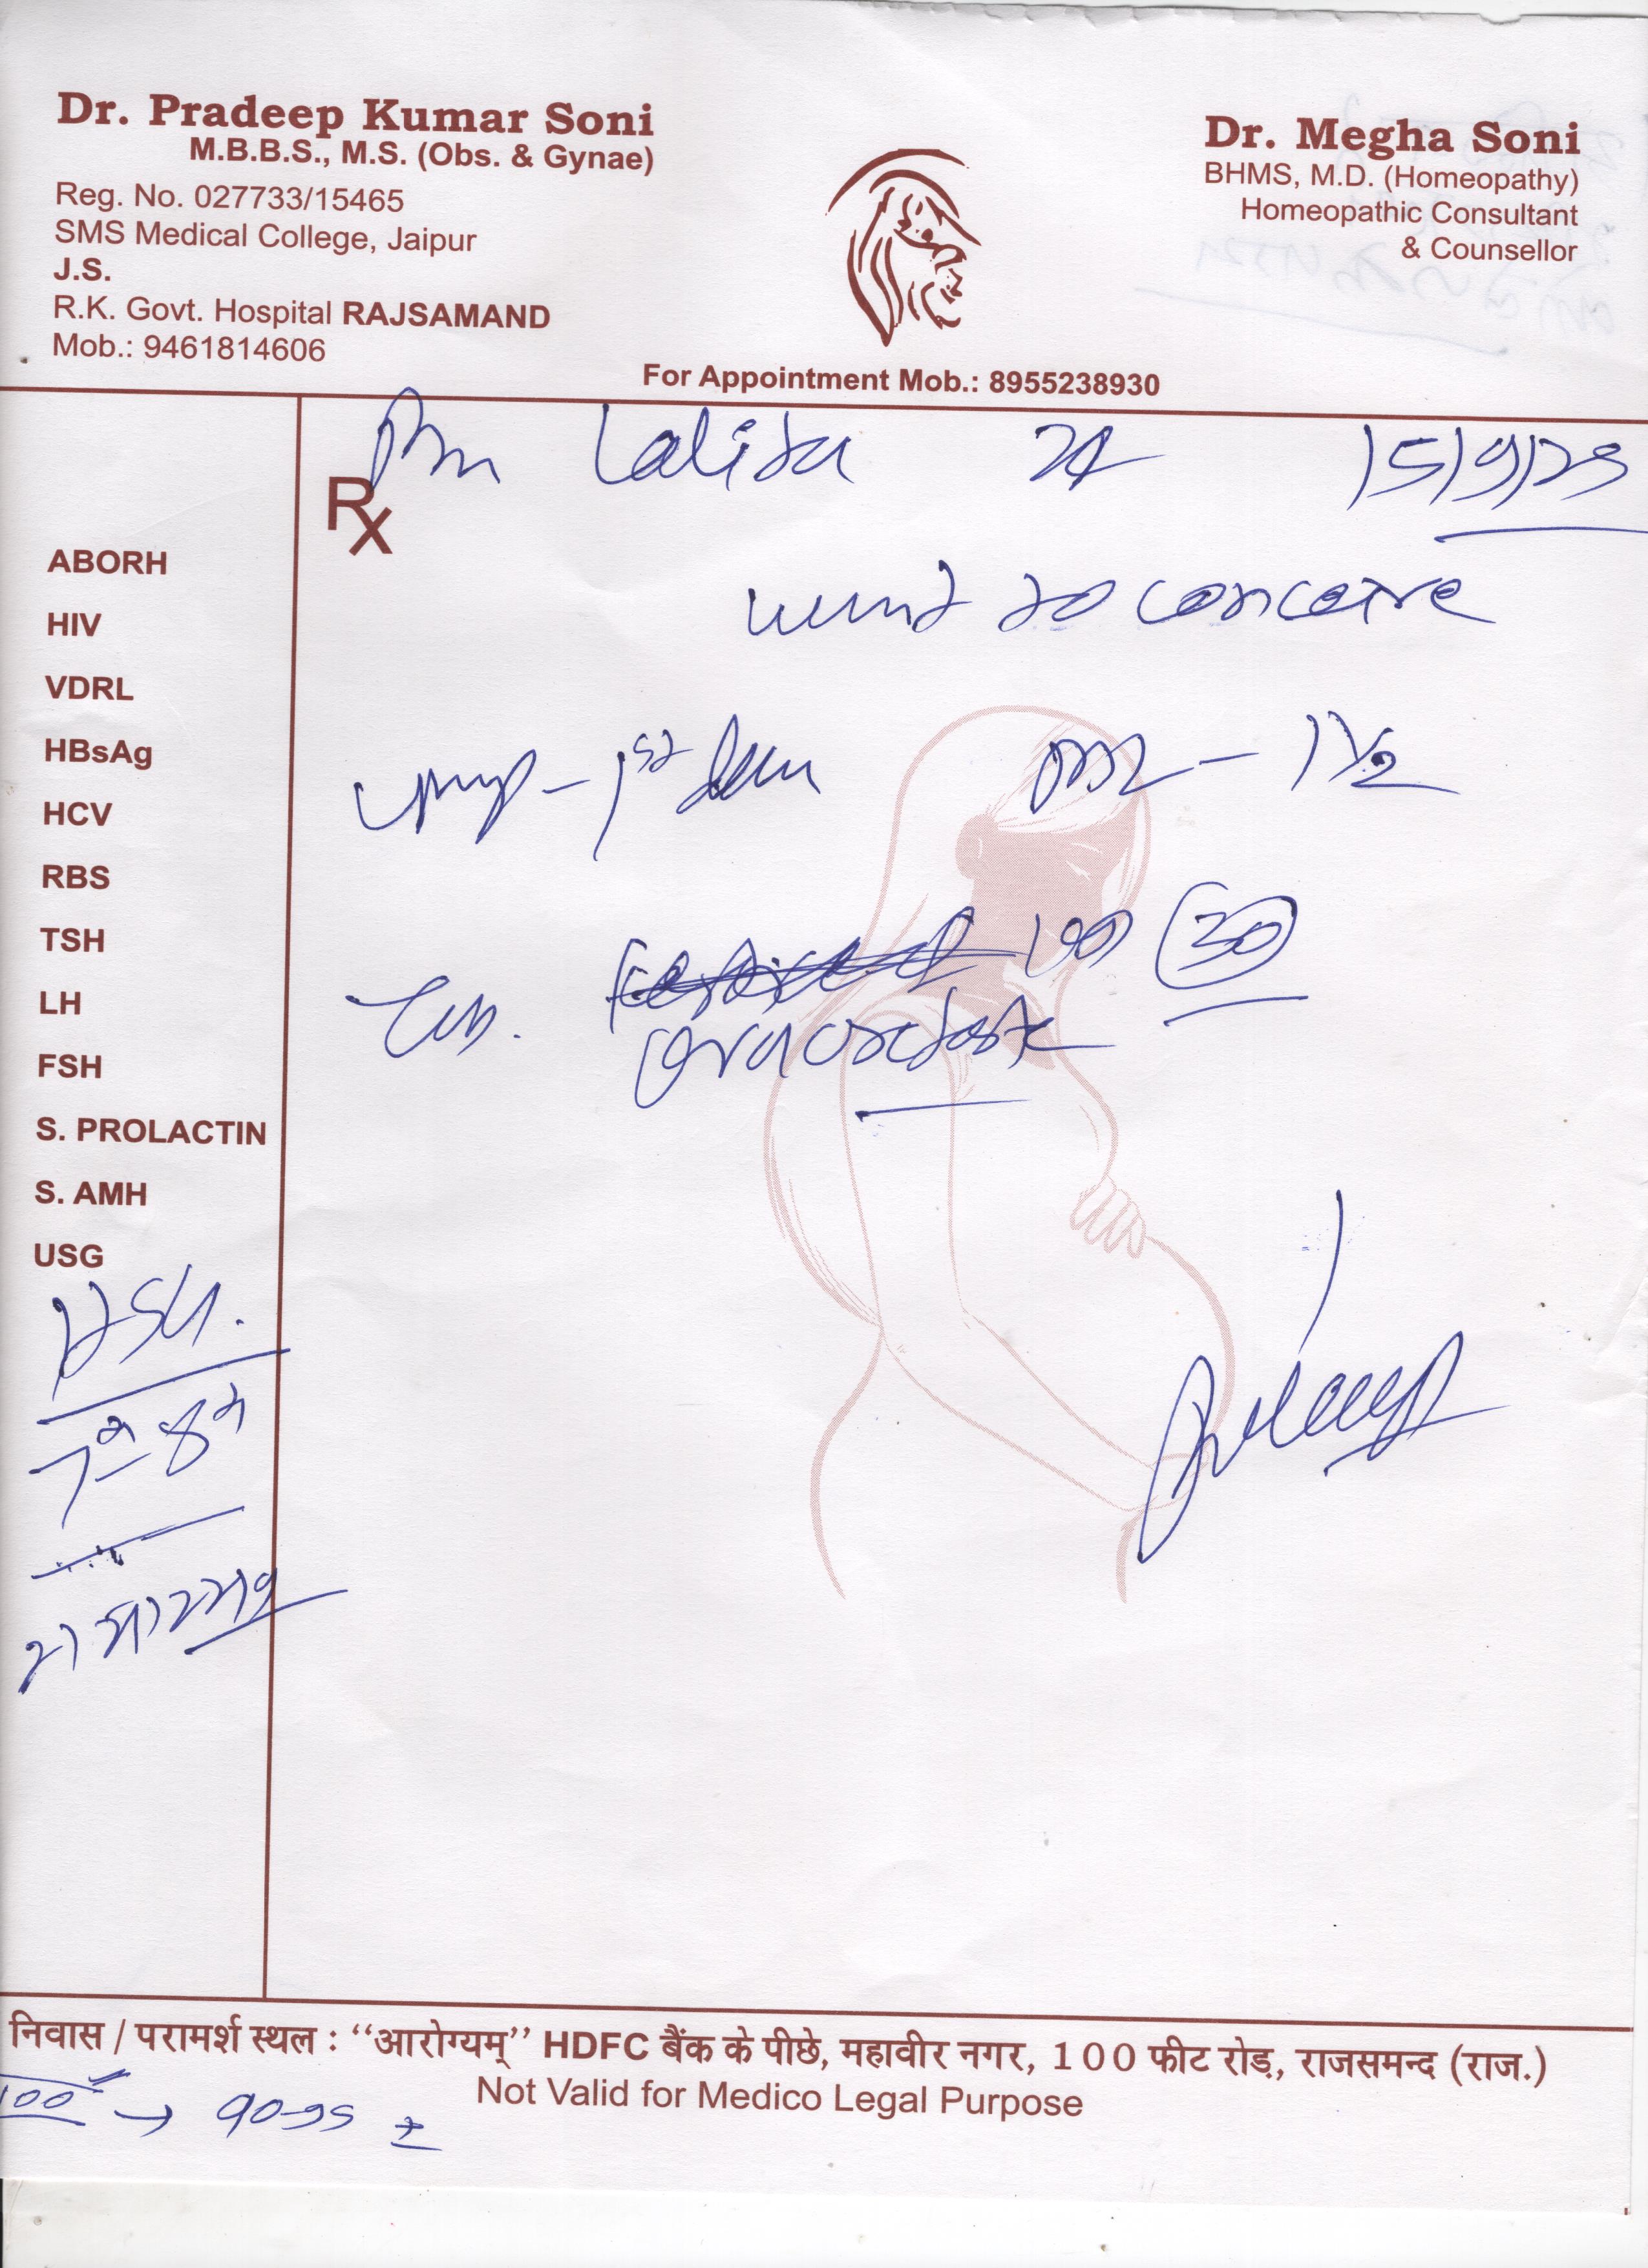 Dr. Pradeep Kumar Soni
M.B.B.S., M.S. (Obs. & Gynae)
Reg. No. 027733/15465
SMS Medical College, Jaipur
J.S.
R.K. Govt. Hospital RAJSAMAND
Mob.: 9461814606
Dr. Megha Soni
BHMS, M.D. (Homeopathy)
Homeopathic Consultant
& Counsellor
For Appointment Mob.: 8955238930
Lalita 15/9/23
Rx
want to conceive
1st
- 1 1/2
Tab.
30
ABORH
HIV
VDRL
HBsAg
HCV
RBS
TSH
LH
FSH
S. PROLACTIN
S. AMH
USG
निवास / परामर्श स्थल : “आरोग्यम्” HDFC बैंक के पीछे, महावीर नगर, 100 फीट रोड़, राजसमन्द (राज.)
Not Valid for Medico Legal Purpose
100 →